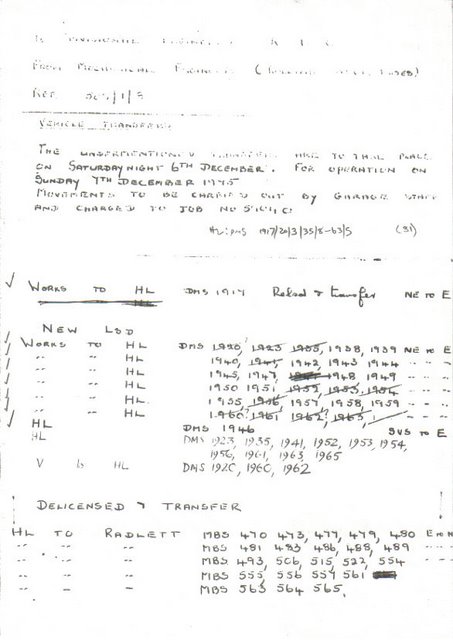 To Divisional Engineers
From Mechanical Engineer
Ref
VEHICLE TRANSFERS
THE UNDERMENTIONED TRANSFERS ARE TO TAKE PLACE
ON SATURDAY NIGHT 6TH DECEMBER. FOR OPERATION ON
SUNDAY 7TH DECEMBER 1975
MOVEMENTS TO BE CARRIED OUT BY GARAGE STAFF
AND CHARGED TO JOB NO
HL: DMS 1917/20/3/35/8-63/5 (31)
WORKS TO HL DMS 1917 Relsd & transfer NE TO E
NEW LSD
WORKS TO HL DMS 1920, 1923 1935, 1938, 1939 NE TO E
" " HL 1940, 1941, 1942, 1943 1944 " " "
" " HL 1945, 1947, 1948, 1949 " " "
" " HL 1950 1951, 1952, 1953, 1954 " " "
" " HL 1955, 1956, 1957, 1958, 1959 " " "
" " HL 1960, 1961, 1962, 1963, " " "
HL DMS 1946 SUS TO E
HL DMS 1923, 1935, 1941, 1952, 1953, 1954,
1956, 1961, 1963 1965
V to HL DMS 1920, 1960, 1962
DELICENSED & TRANSFER
HL TO RADLETT MBS 470 473, 477, 479, 480 E TO N
" " " MBS 481 483 486, 488, 489 " " "
" " " MBS 493, 506, 515, 522, 554 " " "
" " " MBS 555, 556 557 561
" " " MBS 563 564 565.